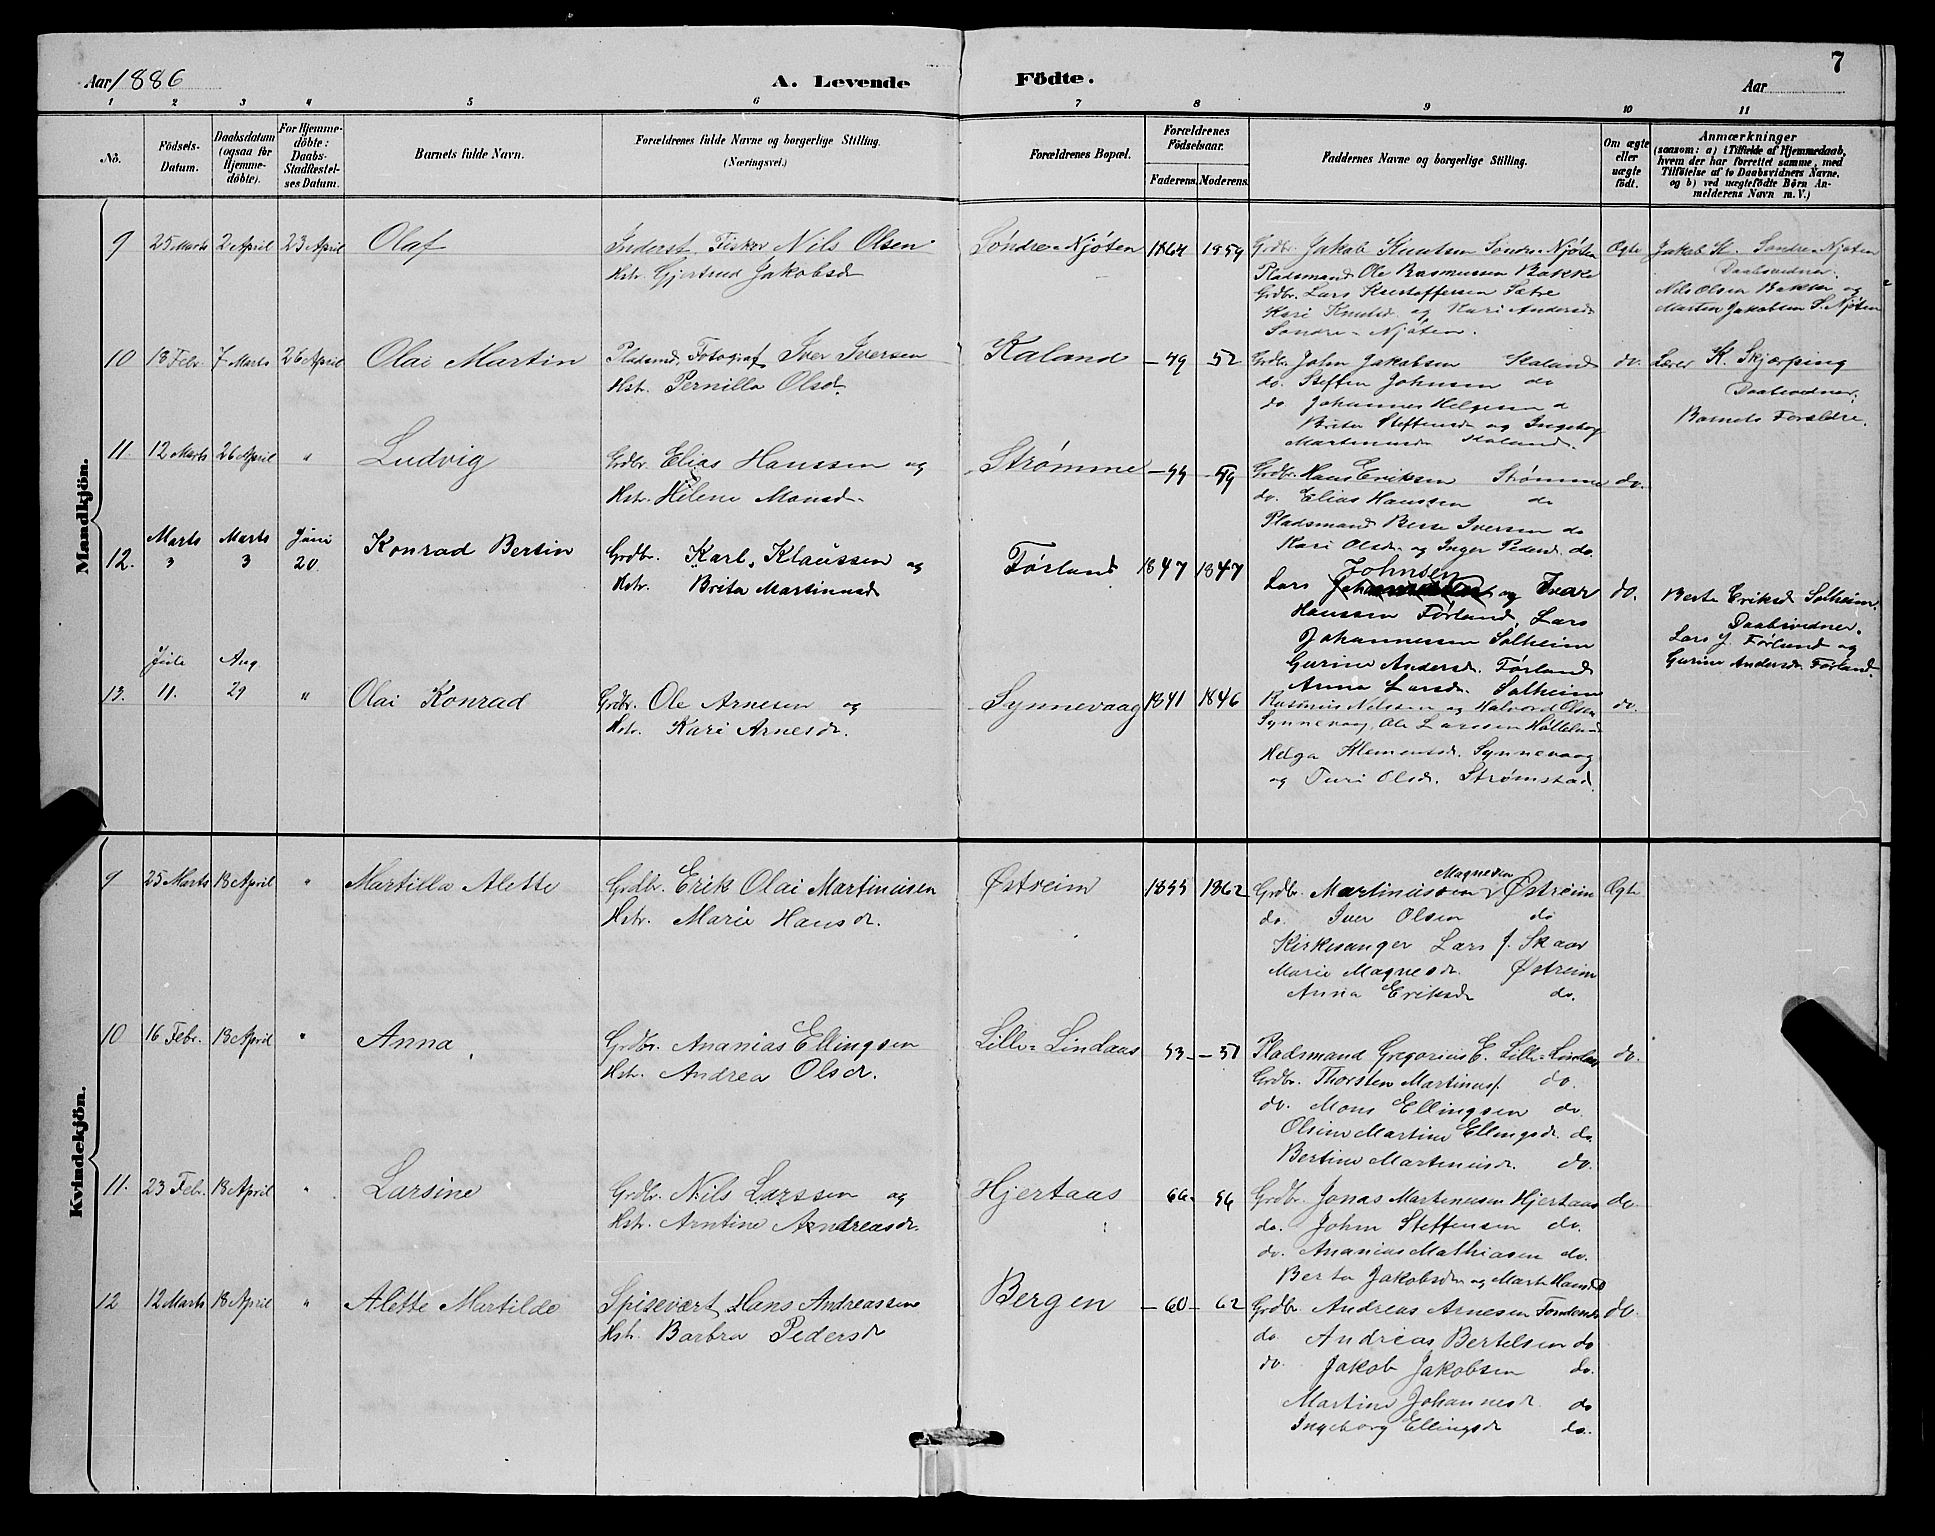 7
Aar 1886 A. Levende Födte. Aar
1 2 3 4 5 6 7 8 9 10 11
No. Födsels-Datum. Daabsdatum (ogsaa for Hjemme-döbte). For Hjemme-döbte: Daabs-Stadfestel-ses Datum. Barnets fulde Navn. Forældrenes fulde Navne og borgerlige Stilling. (Næringsvei.) Forældrenes Bopæl. Forældrenes Födselsaar. Faderens. Moderens. Faddernes Navne og borgerlige Stilling. Om ægte eller uægte födt. Anmærkninger (saasom: a) i Tilfælde af Hjemmedaab, hvem der har forrettet samme, med Tilföielse af to Daabsvidners Navne, og b) ved uægtefödte Börn Anmelderens Navn m. V.)
Mandkjön.
9 25 Marts 2 April 23 April Olaf Inderst Fisker Nils Olsen Søndre-Njøten 1864 1859 Grdbr. Jakob Knutsen Søndre-Njøten Ægte Jakob K. Søndre Njøten
Hst. Gjertrud Jakobsd Pladsmand Ole Rasmussen Bakke Daabsvidner.
Grdbr. Lars Kristoffersen Sætre Nils Olsen Bakken og
Kari Knutsd. og Kari Andersd Marten Jakobsen S. Njøten
Søndre-Njøten.
10 18 Febr 7 Marts 26 April Olai Martin Pladsmd Fotograf Iver Iversen Kaland -49 52 Grdbr John Jakobsen Kaland do. Lærer K. Skjærping
Hst. Pernilla Olsd. do. Steffen Johnsen do Daabsvidner.
do Johannes Helgesen d Barnets Forældre.
Brita Steffensd og Ingeborg
Martinusd Kaland.
11. 12 Marts 26 April " Ludvig Grdbr. Elias Hanssen og Strømme -44 -49 Grdbr. Hans Eriksen Strømme do.
Hst. Helene Monsd. do. Elias Hanssen do
Pladsmand Berse Iversen do
Kari Olsd og Inger Pedersd. do.
12. Marts 3 Marts 3 Juni 20 Konrad Bertin Grdbr. Karl Klaussen og Førland 1847 1847 Lars Johnsen og Ivar do. Berte Eriksd Solheim.
Hst. Brita Martinusd Hanssen Førland, Lars Daabsvidner.
Johannessen Solheim Lars J. Førland og
Gurine Andersd. Førland Gurine Andersd. Førland.
Anna Larsd. Solheim
13. Juli 11. Aug 29 " Olai Konrad Grdbr. Ole Arnesen og Synnevaag 1841 1846 Rasmus Nilssen og Halvord Olsen do.
Hst. Kari Arnesd. Synnevaag, Ole Larssen
Helga Klemensd. Synnevaag
og Turi Olsd. Strømstad.
Kvindekjön.
9 25 Marts 18 April " Martilla Alette Grdbr. Erik Olai Martinusen Østreim 1855 1862 Grdbr. Martinus Magnesen Østreim Ægte
Hst. Marie Hansd. do. Iver Olsen do
Kirkesanger Lars J. Skaar
Marie Magnesd. Østreim
Anna Eriksd do.
10 16 Febr. 18 April " Anna Grdbr. Ananias Ellingsen Lille-Lindaas 53 -51 Pladsmand Gregorius E. Lille-Lindaas do.
Hst. Andrea Olsd. Grdbr. Thorsten Martinus. do.
do. Mons Ellingsen do.
Olsine Martine Ellingsd. do.
Bertine Martinusd. do.
11. 23 Febr. 18 April " Larsine Grdbr. Nils Larssen og Hjertaas 66 56 Grdbr. Jonas Martinusen Hjertaas do.
Hst. Arntine Andreasd. do. John Steffensen do.
do. Ananias Mathiasen do.
Berta Jakobsd og Marta Hansd
12 12 Marts 18 April " Alette Martilde Spisevært Hans Andreassen Bergen -60 -62 Grdbr. Andreas Arnesen do.
Hst. Barbra Pedersd do Andreas Bertelsen do
do. Jakob Jakobsen do.
Martine Johannesd. do
Ingeborg Ellingsd do.